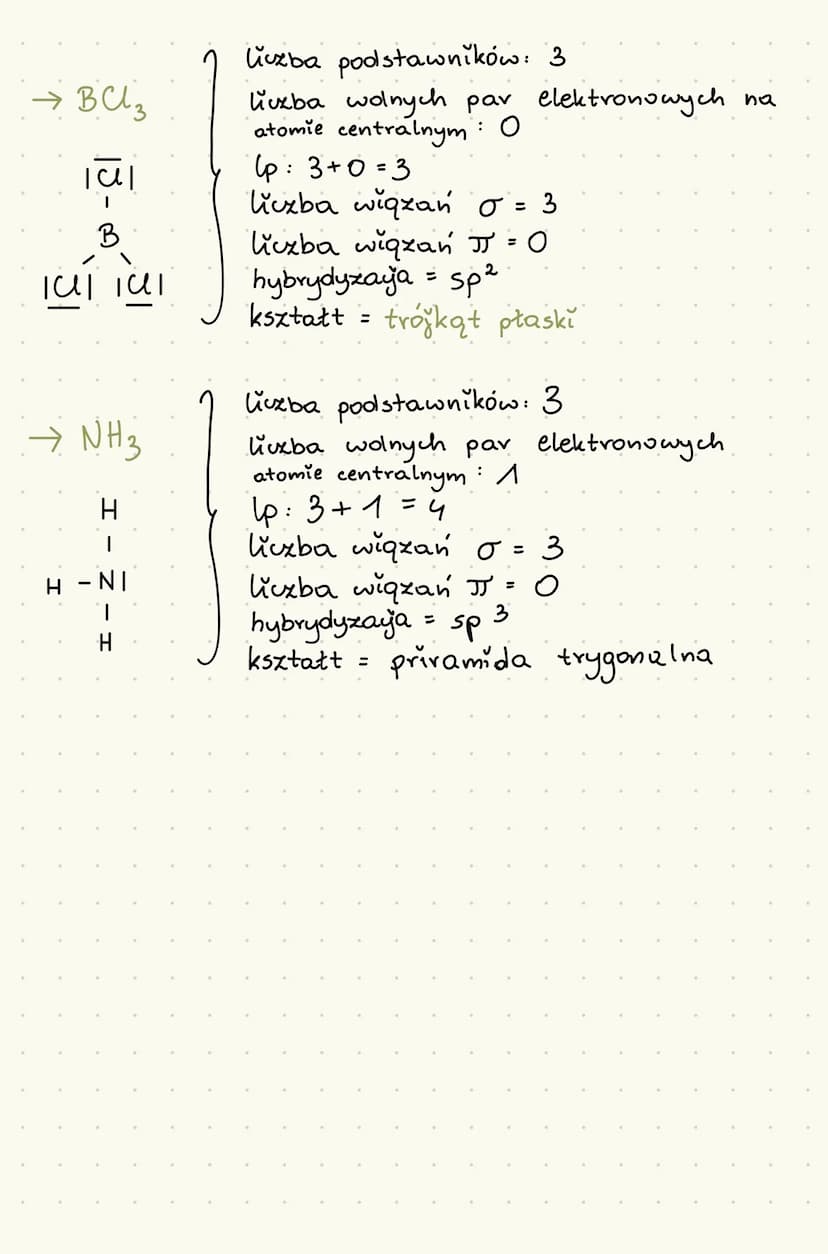 liczba podstawników: 3
→ BCl3
liczba wolnych par elektronowych na
atomie centralnym: 0
lp: 3+0=3
|Cl|
liczba wiązań σ = 3
B
liczba wiązań π = 0
|Cl| |Cl|
hybrydyzacja = sp²
kształt = trójkąt płaski
liczba podstawników: 3
→ NH3
liczba wolnych par elektronowych
atomie centralnym: 1
lp: 3+1=4
H
liczba wiązań σ = 3
H-N|
liczba wiązań π = 0
H
hybrydyzacja = sp³
kształt = piramida trygonalna